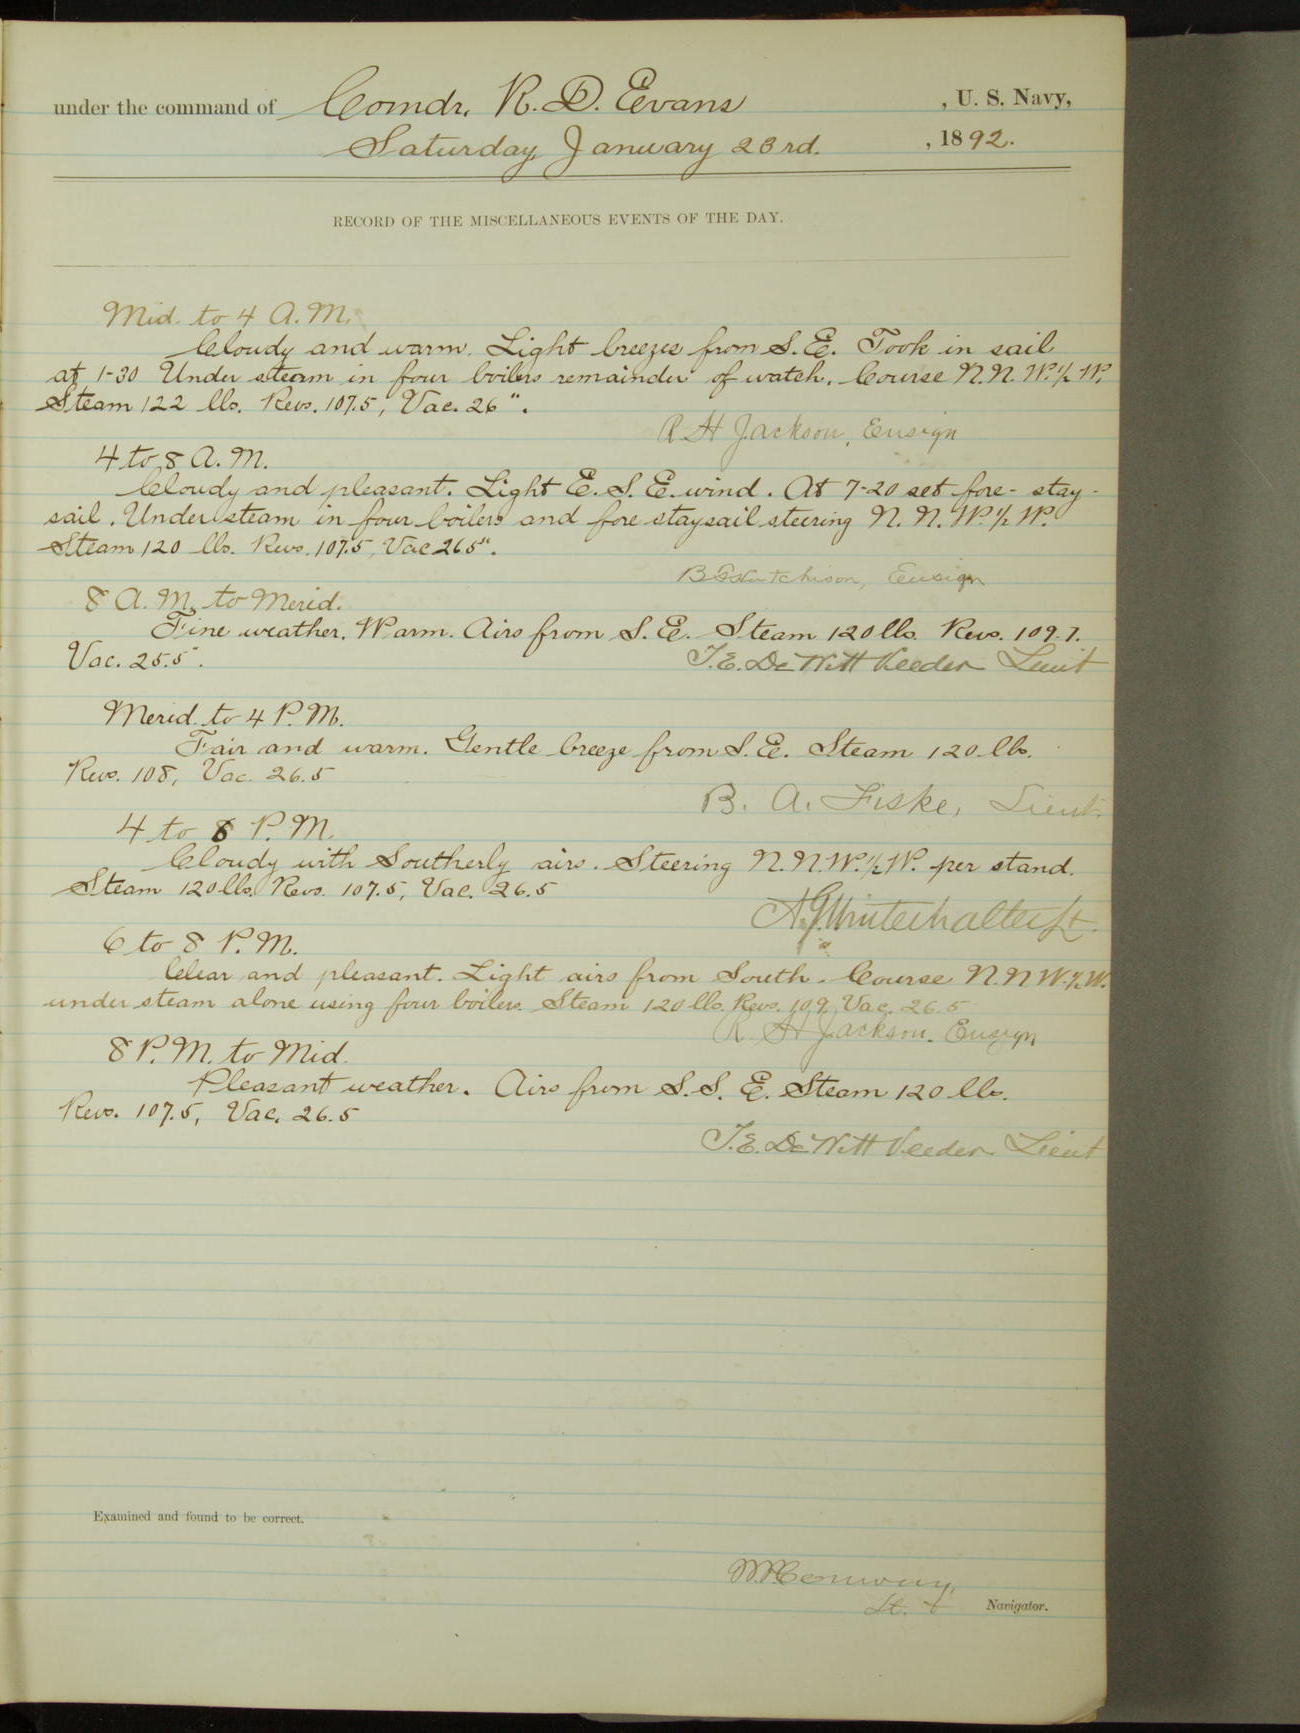 under the command of Comdr. R. D. Evans, U. S. Navy,
Saturday, January 23rd. , 1892.
RECORD OF THE MISCELLANEOUS EVENTS OF THE DAY.
Mid. to 4 A.M.
Cloudy and warm. Light breezes from S.E. Took in sail
at 1-30 Under steam in four boilers remainder of watch. Course N.N.W.½W.
Steam 122 lbs. Revs. 107.5, Vac. 26".
R H Jackson, Ensign
4 to 8 A.M.
Cloudy and pleasant. Light E.S.E. wind. At 7-20 set fore-stay-
sail. Under steam in four boilers and fore staysail steering N.N.W.½W.
Steam 120 lbs. Revs. 107.5, Vac 26.5".
Hutchison, Ensign
8 A.M. to Merid.
Fine weather. Warm. Airs from S.E. Steam 120 lbs. Revs. 109.7.
Vac. 25.5".
T.E. DeWitt Veeder Lieut
Merid. to 4 P.M.
Fair and warm. Gentle breeze from S.E. Steam 120 lbs.
Revs. 108, Vac. 26.5
B. A. Fiske, Lieut.
4 to 6 P.M.
Cloudy with Southerly airs. Steering N.N.W.½W. per stand.
Steam 120 lbs. Revs. 107.5, Vac. 26.5
A.G. Winterhalter Lt.
6 to 8 P.M.
Clear and pleasant. Light airs from South. Course N.N.W.½W.
under steam alone using four boilers. Steam 120 lbs. Revs. 109, Vac. 26.5
R H Jackson. Ensign
8 P.M. to Mid.
Pleasant weather. Airs from S.S.E. Steam 120 lbs.
Revs. 107.5, Vac. 26.5
T.E. DeWitt Veeder. Lieut
Examined and found to be correct.
W.P. Conway,
Lt. & Navigator.